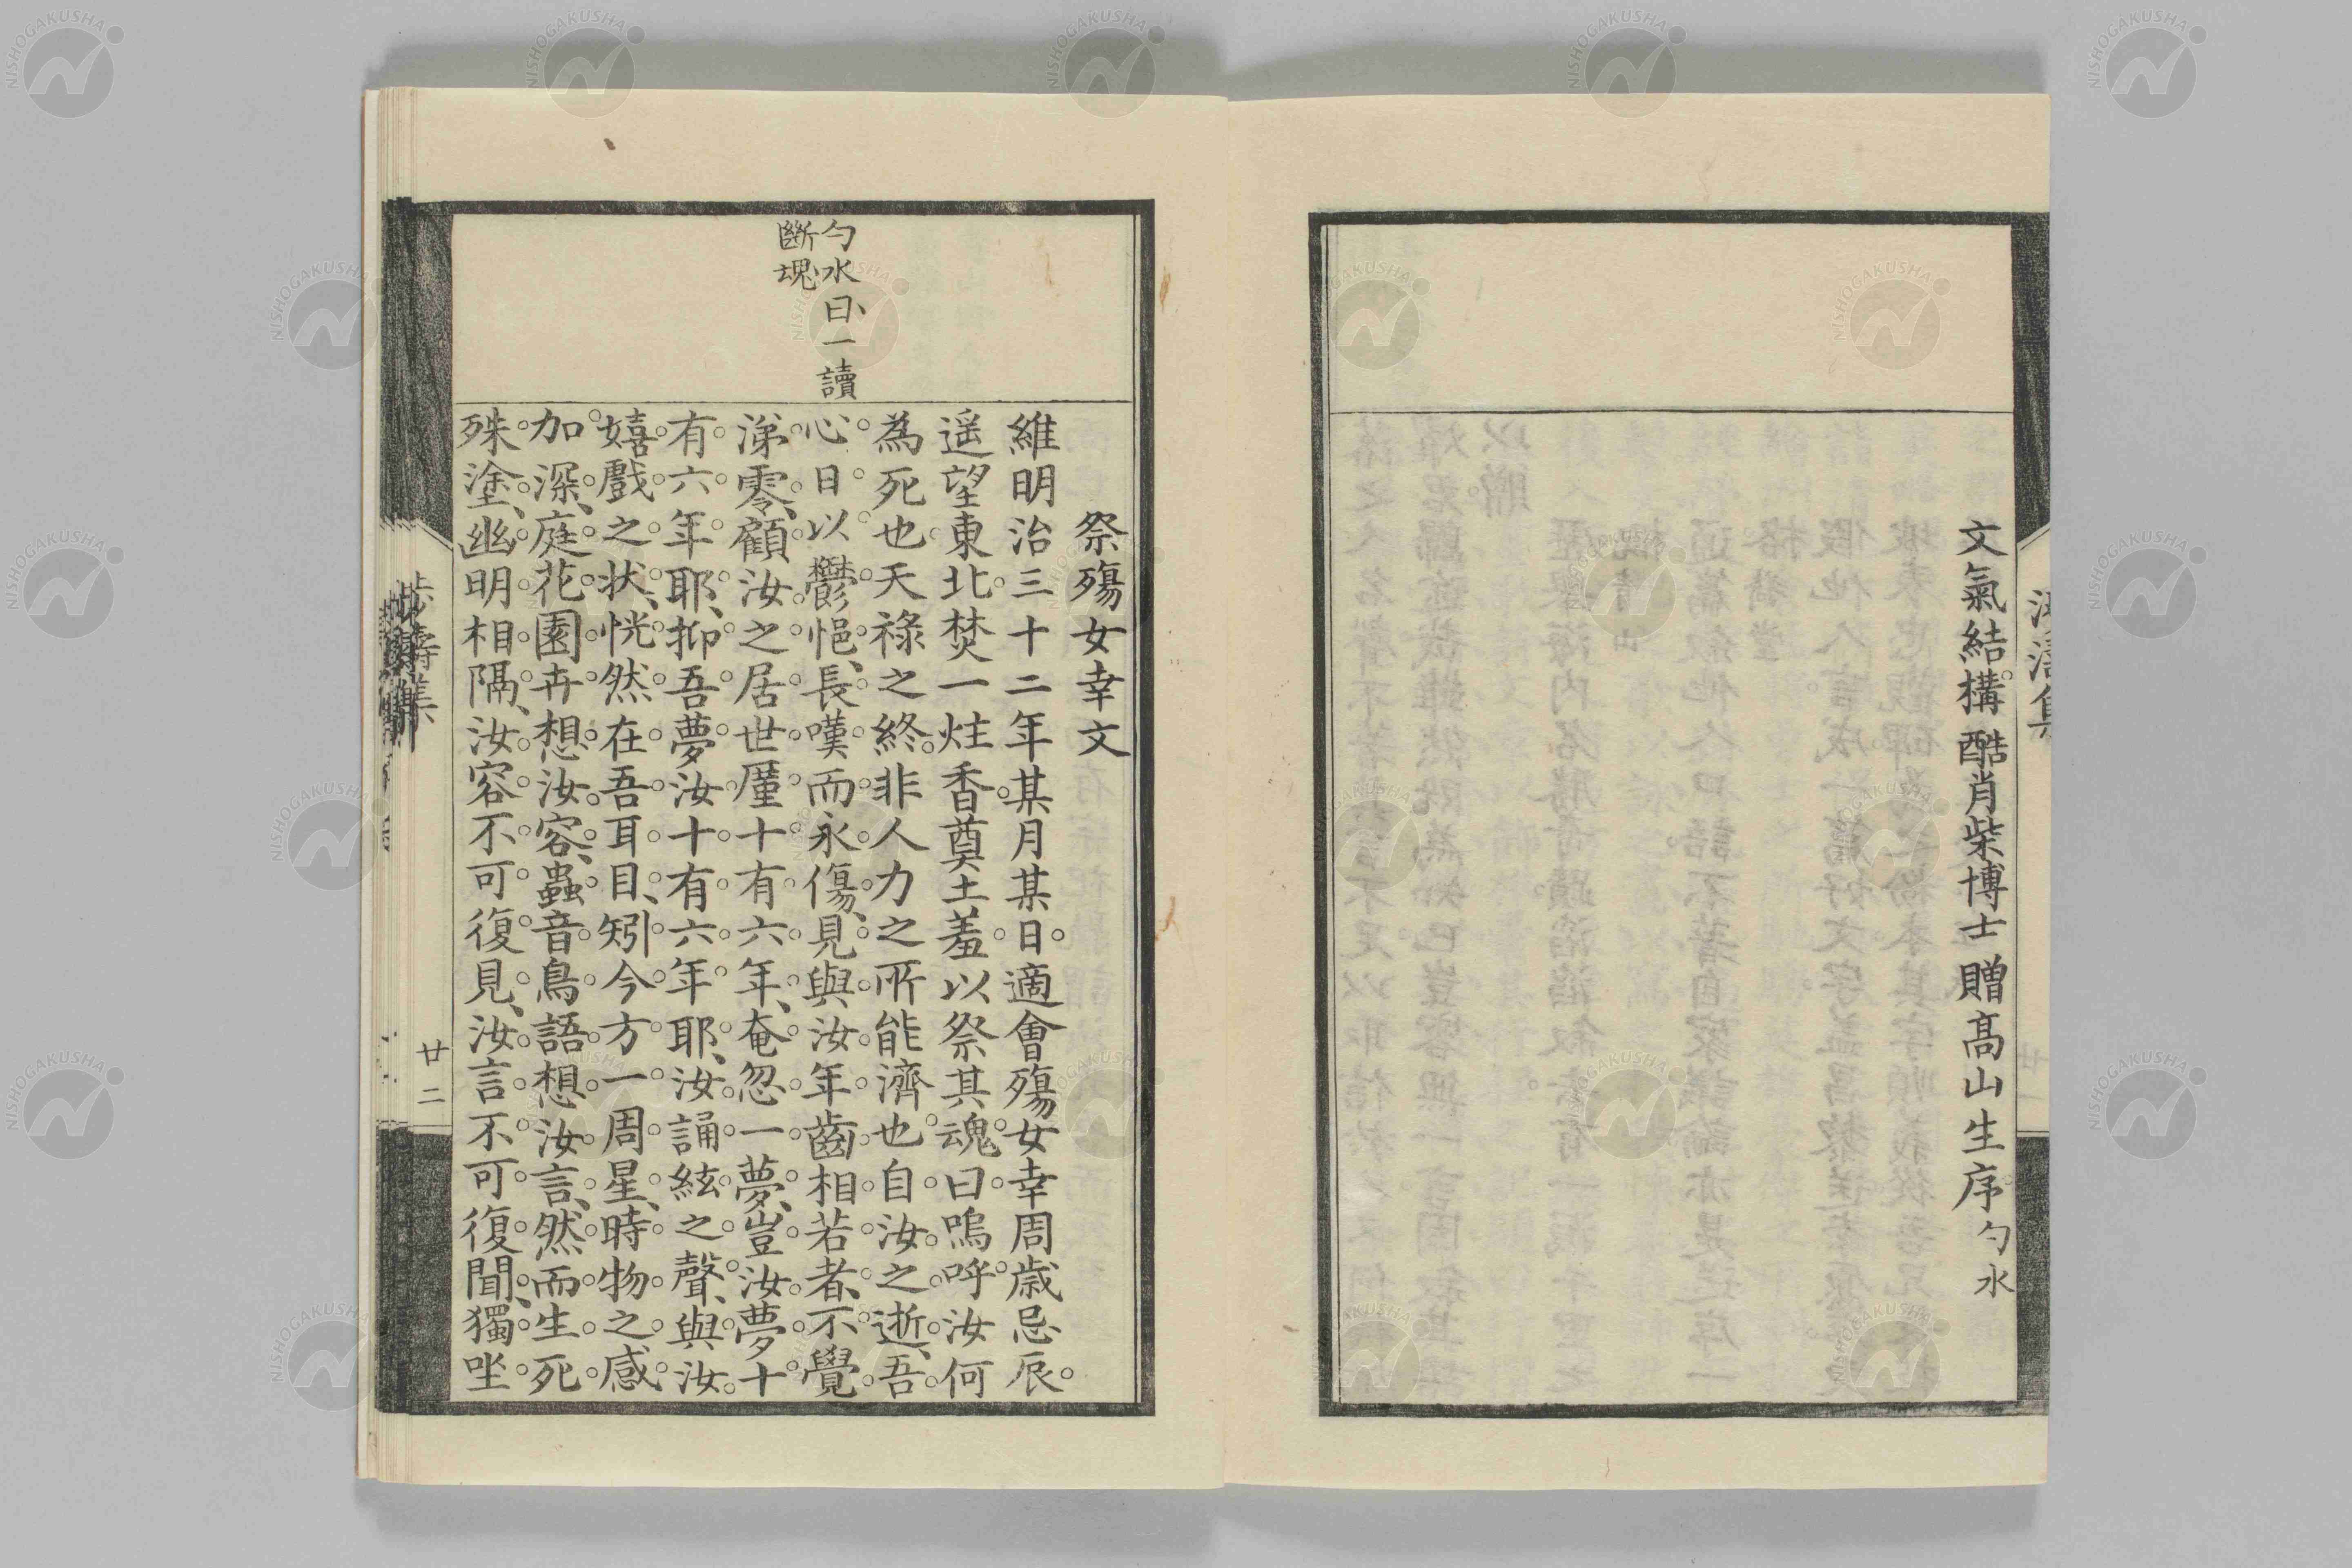 文氣結構酷肖柴博士贈高山生序 勺水
勺水曰、一讀
斷魂
祭殤女幸文
維明治三十二年某月某日。適會殤女幸周歲忌辰。
遥望東北焚一炷香。奠土羞以祭其魂曰嗚呼汝何
為死也天祿之終。非人力之所能濟也自汝之逝、吾
心日以鬱悒、長嘆而永傷、見與汝年齒相若者、不覺
涕零、顧汝之居世厪十有六年、奄忽一夢、豈汝夢十
有六年耶、抑吾夢汝十有六年耶、汝誦絃之聲、與汝
嬉戲之状、恍然在吾耳目、矧今方一周星、時物之感
加深、庭花園卉想汝容、蟲音鳥語想汝言、然而生死
殊塗、幽明相隔、汝容不可復見、汝言不可復聞、獨坐
廿二